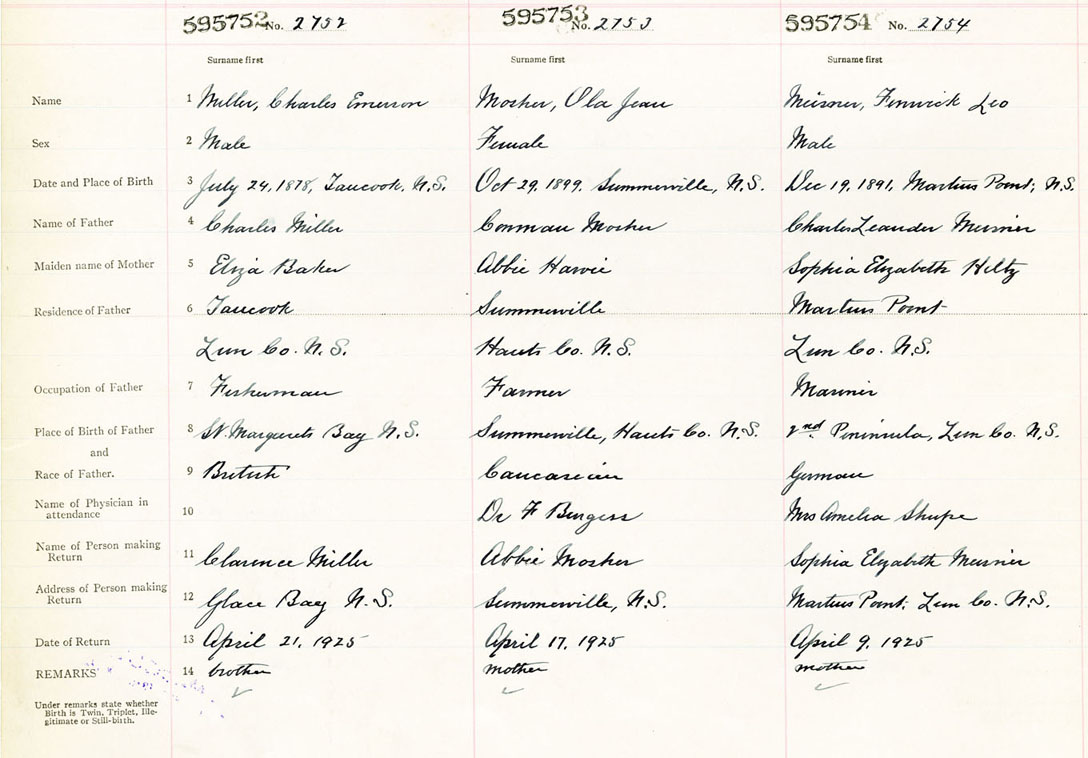 595752 No. 2752 595753 No. 2753 595754 No. 2754
Surname first Surname first Surname first
Name 1 Miller, Charles Emerson Mosher, Ola Jean Meisner, Fenwick Leo
Sex 2 Male Female Male
Date and Place of Birth 3 July 24, 1878, Tancook, N.S. Oct 29, 1899, Summerville, N.S. Dec 19, 1891, Martins Point, N.S.
Name of Father 4 Charles Miller Conman Mosher Charles Leander Meisner
Maiden name of Mother 5 Eliza Baker Abbie Harvie Sophia Elizabeth Hiltz
Residence of Father 6 Tancook Summerville Martins Point
Lun Co. N.S. Hants Co. N.S. Lun Co. N.S.
Occupation of Father 7 Fisherman Farmer Mariner
Place of Birth of Father 8 St. Margarets Bay N.S. Summerville, Hants Co. N.S. 2nd Peninsula, Lun Co. N.S.
and
Race of Father. 9 British Caucasian German
Name of Physician in
attendance 10 Dr F Burgess Mrs Amelia Shupe
Name of Person making
Return 11 Clarence Miller Abbie Mosher Sophia Elizabeth Meisner
Address of Person making
Return 12 Glace Bay N.S. Summerville, N.S. Martins Point, Lun Co. N.S.
Date of Return 13 April 21, 1925 April 17, 1925 April 9, 1925
REMARKS 14 brother mother mother
Under remarks state whether
Birth is Twin, Triplet, Ille-
gitimate or Still-birth.